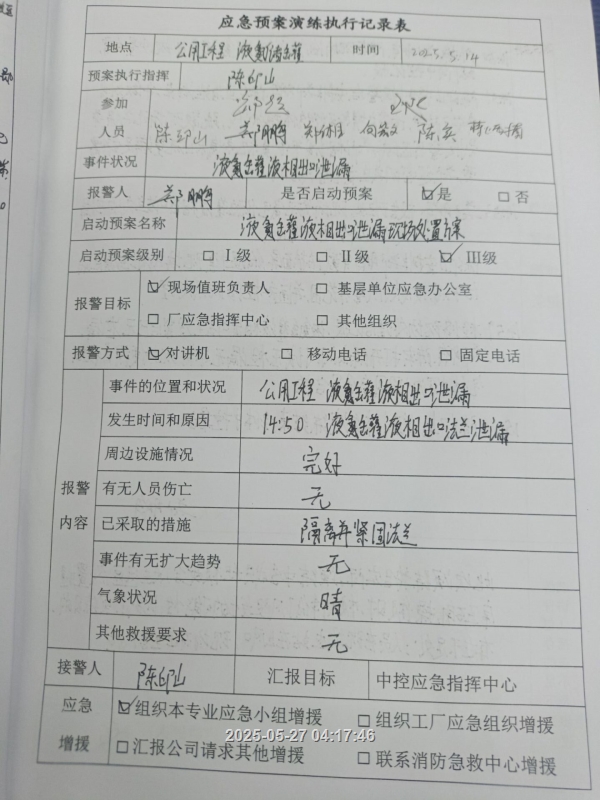 应急预案演练执行记录表
地点 公用工程 液氨储罐 时间 2025.5.14
预案执行指挥
参加
人员
事件状况 液氨罐液相出口泄漏
报警人 是否启动预案 ☑是 □否
启动预案名称 液氨罐液相出口泄漏现场处置方案
启动预案级别 □Ⅰ级 □Ⅱ级 ☑Ⅲ级
报警目标 ☑现场值班负责人 □基层单位应急办公室
□厂应急指挥中心 □其他组织
报警方式 ☑对讲机 □移动电话 □固定电话
报警内容
事件的位置和状况 公用工程 液氨罐液相出口泄漏
发生时间和原因 14:50 液氨罐液相出口法兰泄漏
周边设施情况 完好
有无人员伤亡 无
已采取的措施 隔离并紧固法兰
事件有无扩大趋势 无
气象状况 晴
其他救援要求 无
接警人 汇报目标 中控应急指挥中心
应急增援 ☑组织本专业应急小组增援 □组织工厂应急组织增援
□汇报公司请求其他增援 □联系消防急救中心增援
2025-05-27 04:17:46